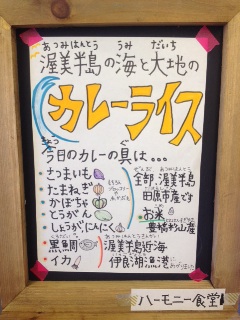 あつみはんとう うみ だいち
渥美半島の海と大地の
カレーライス
きょう
今日のカレーの具は…
さつまいも
たまねぎ
かぼちゃ
とうがん
しょうが にんにく
ぜんぶ あつみはんとう
全部、渥美半島
田原市産です
お米
豊橋杉山産
黒鯛
イカ
渥美半島近海
伊良湖漁港
ハーモニー食堂